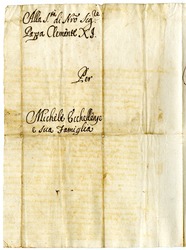 Alla S.tà di Nro Sig.re
Papa Clemente XI.
Per
Michele
e sua Famiglia